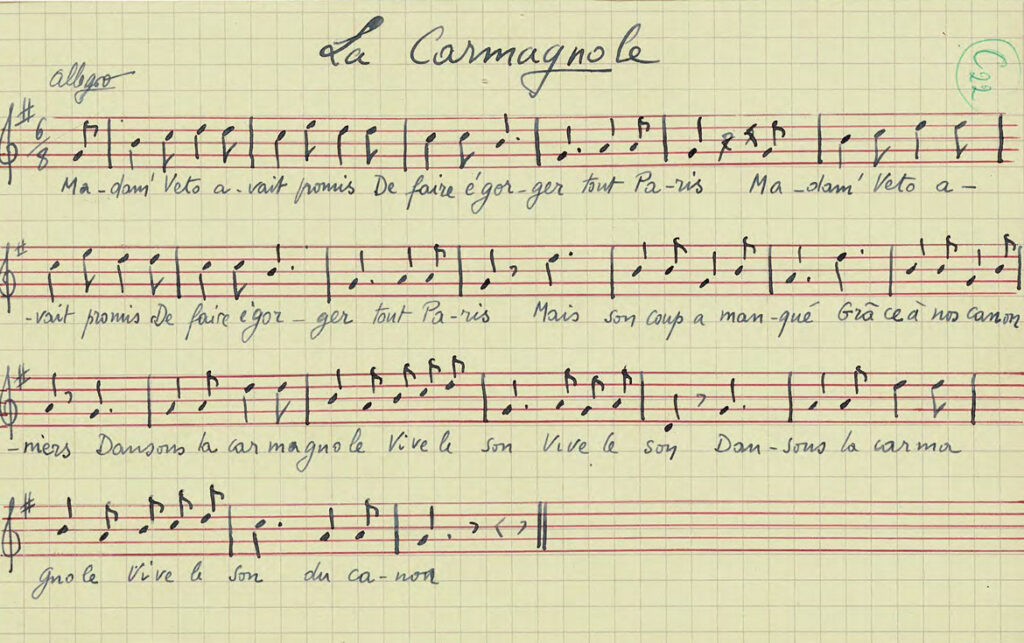 La Carmagnole
C22
Allegro
6/8
Ma-dam' Veto a-vait promis De faire é'gor-ger tout Pa-ris Ma-dam' Veto a-
-vait promis De faire égor-ger tout Pa-ris Mais son coup a man-qué Grâce à nos canon
-niers Dansons la carmagnole Vive le son Vive le son Dan-sons la carma
gnole Vive le son du ca-non